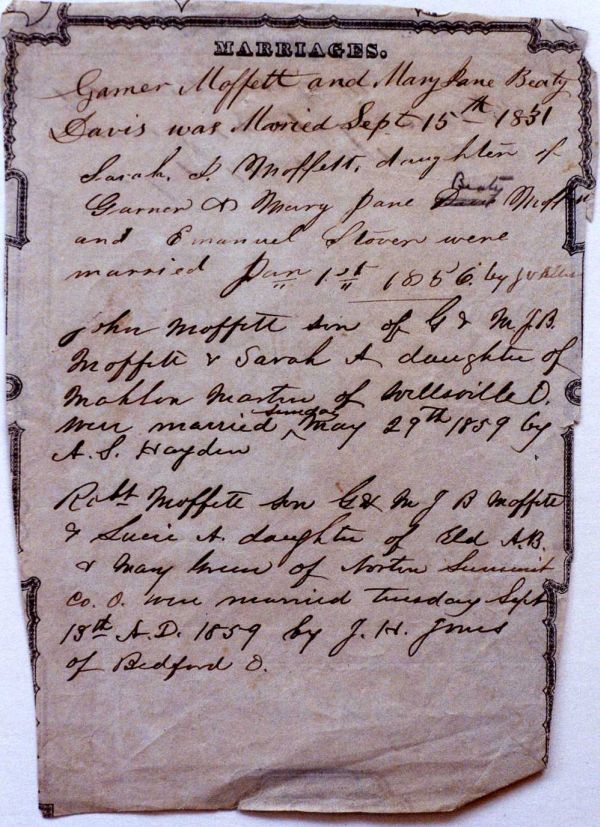 MARRIAGES.
Garner Moffett and Mary Jane Beaty
Davis was Maried Sept 15th 1831
Sarah. J. Moffett, daughter of
Garner & Mary Jane Beaty Moffett
and Emanuel Stover were
married Jan 1st 1856. by
John Moffett son of G & M.J.B.
Moffett & Sarah A daughter of
Mahlon Martin of Wellsville O.
were married Sunday May 29th 1859 by
A. S. Hayden
Robt Moffett son G & M J B Moffett
& Lucie A. daughter of Eld A.B.
& Mary Green of Norton Summit
Co. O. were married tuesday Sept
13th A.D. 1859 by J. H. Jones
of Bedford O.